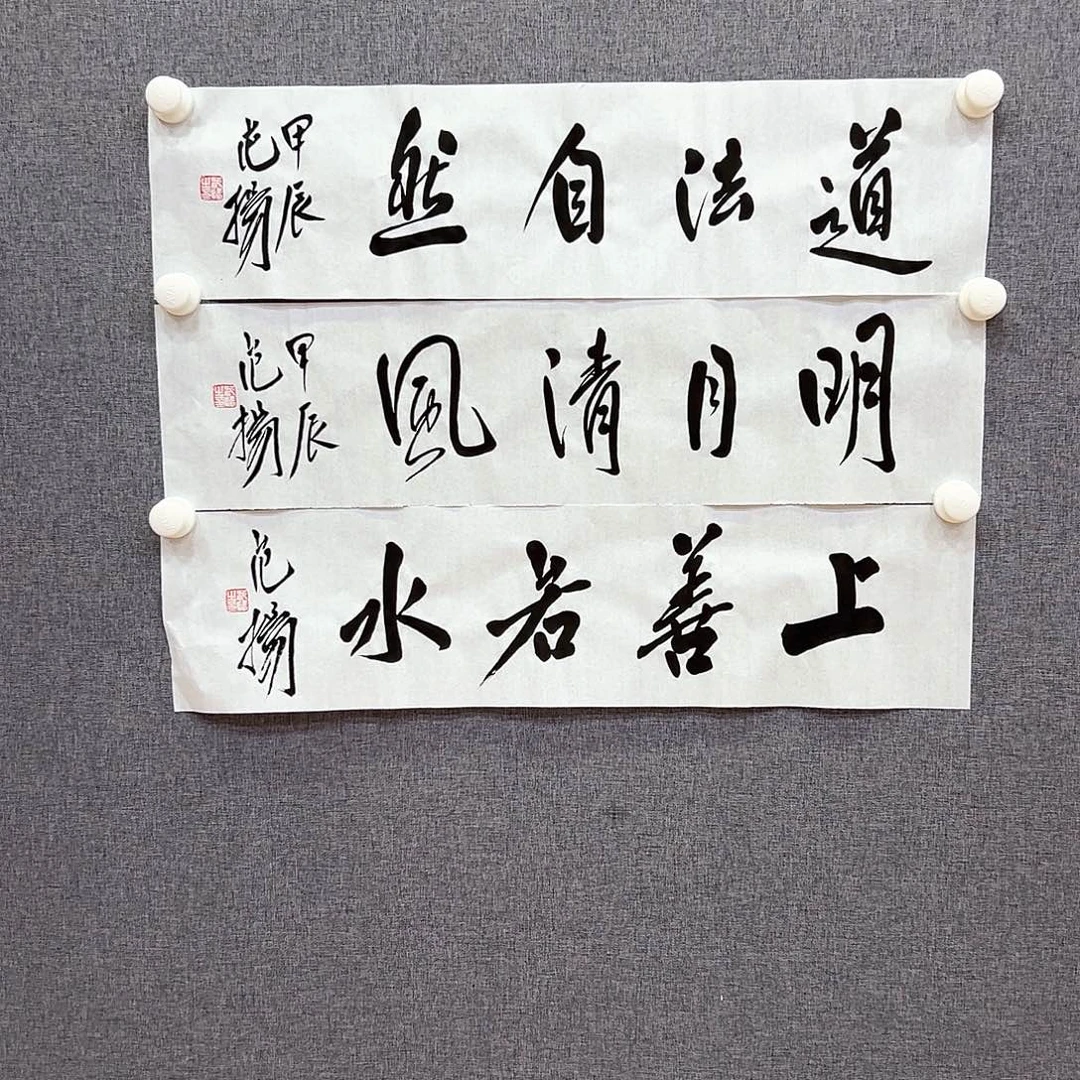 道法自然
甲辰
范揚
明月清風
甲辰
范揚
上善若水
范揚